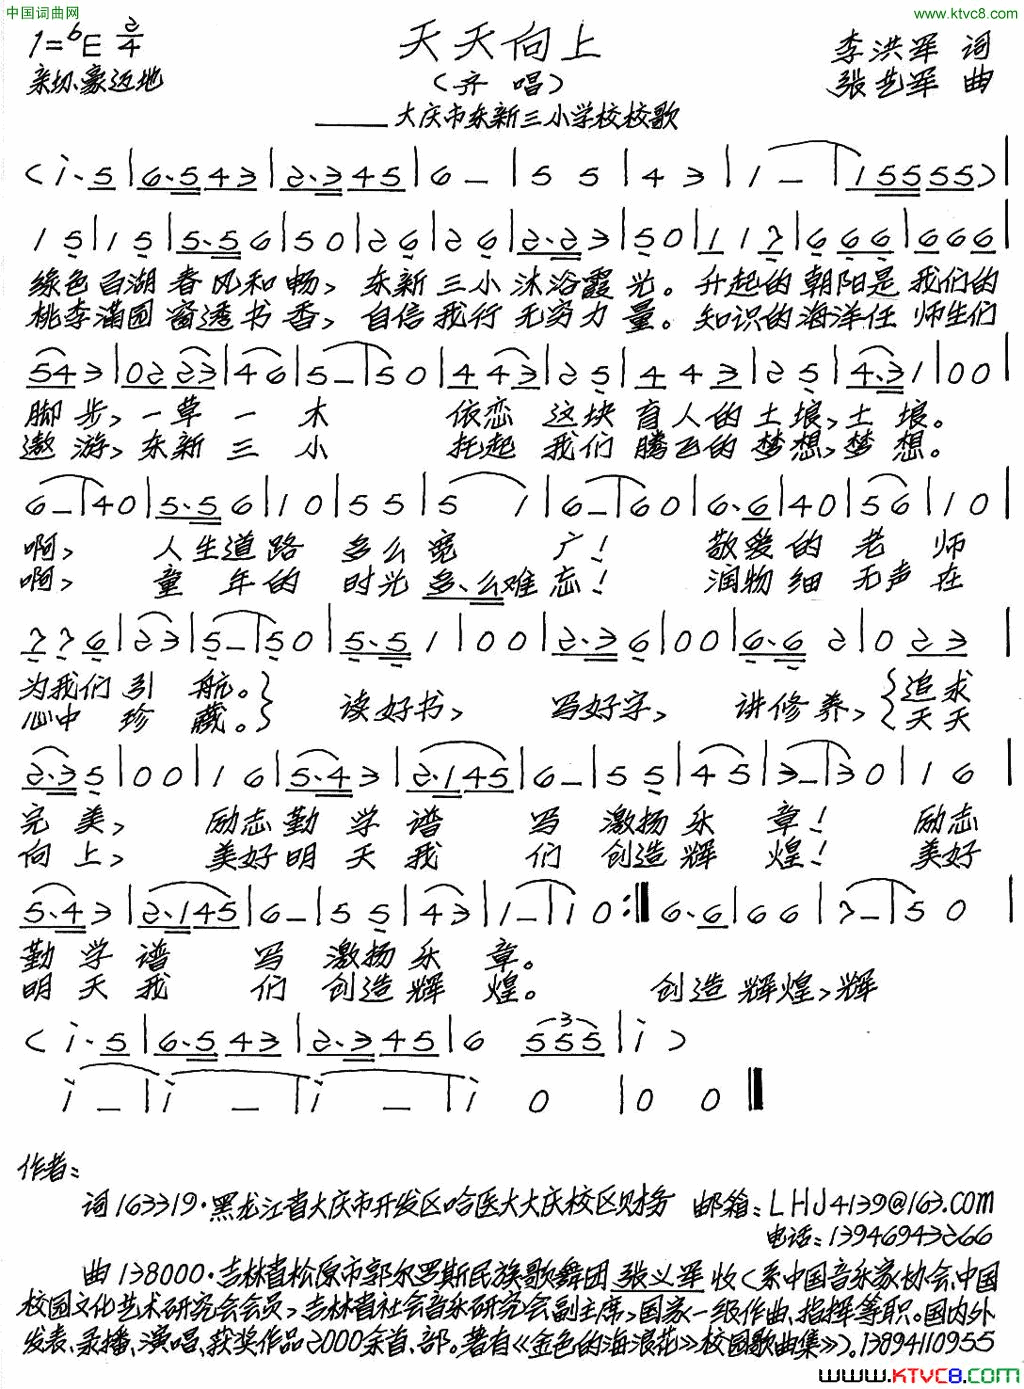 中国词曲网
www.ktvc8.com
1=♭E 2/4
天天向上
李洪军 词
亲切、豪迈地
（齐 唱）
张艺军 曲
——大庆市东新三小学校校歌
( i·5 | 6·543 | 2·345 | 6 – | 5 5 | 4 3 | 1 – | 15555 ) |
1 5 | 1 5 | 5·5 6 | 5 0 | 2 6 | 2 6 | 2·2 3 | 5 0 | 1 1 7 | 6 6 6 | 6 6 6 |
绿色百湖春风和畅，东新三小沐浴霞光。升起的朝阳是我们的
桃李满园窗透书香，自信我行无穷力量。知识的海洋任师生们
5 4 3 | 0 2 2 3 | 4 6 | 5 – | 5 0 | 4 4 3 | 2 5 | 4 4 3 | 2 5 | 4·3 1 | 0 0 |
脚步，一草一木 依恋这块育人的土壤，土壤。
遨游，东新三小 托起我们腾飞的梦想，梦想。
6 – | 4 0 | 5·5 6 | 1 0 | 5 5 | 5 1 | 6 – | 6 0 | 6·6 | 4 0 | 5 6 | 1 0 |
啊，人生道路多么宽广！敬爱的老师
啊，童年的时光多么难忘！润物细无声在
7 7 6 | 2 3 | 5 – | 5 0 | 5·5 1 | 0 0 | 2·3 6 | 0 0 | 6·6 2 | 0 2 3 |
为我们引航。} 读好书，写好字，讲修养，{追求
心中珍藏。} {天天
2·3 5 | 0 0 | 1 6 | 5·4 3 | 2·1 4 5 | 6 – | 5 5 | 4 5 | 3 – | 3 0 | 1 6 |
完美，励志勤学谱写激扬乐章！励志
向上，美好明天我们创造辉煌！美好
5·4 3 | 2·1 4 5 | 6 – | 5 5 | 4 3 | 1 – | 1 0 :‖ 6·6 | 6 6 | 7 – | 5 0 |
勤学谱写激扬乐章。
明天我们创造辉煌。创造辉煌，辉
( i·5 | 6·5 4 3 | 2·3 4 5 | 6 5 5 5 | i )
3
i – | i – | i – | i 0 | 0 0 ‖
作者：
词163319·黑龙江省大庆市开发区哈医大大庆校区财务 邮箱：LHJ4139@163.com
电话：13946943266
曲138000·吉林省松原市郭尔罗斯民族歌舞团张义军收（系中国音乐家协会、中国
校园文化艺术研究会会员，吉林省社会音乐研究会副主席，国家一级作曲、指挥等职。国内外
发表、录播、演唱、获奖作品2000余首、部。著有《金色的海浪花》校园歌曲集》）。13894110955
www.KTVC8.com